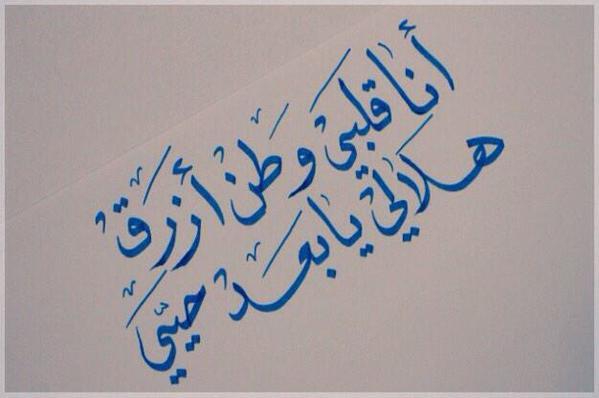 أنا قلبي وطن أزرق
هلالي يا بعد حيي